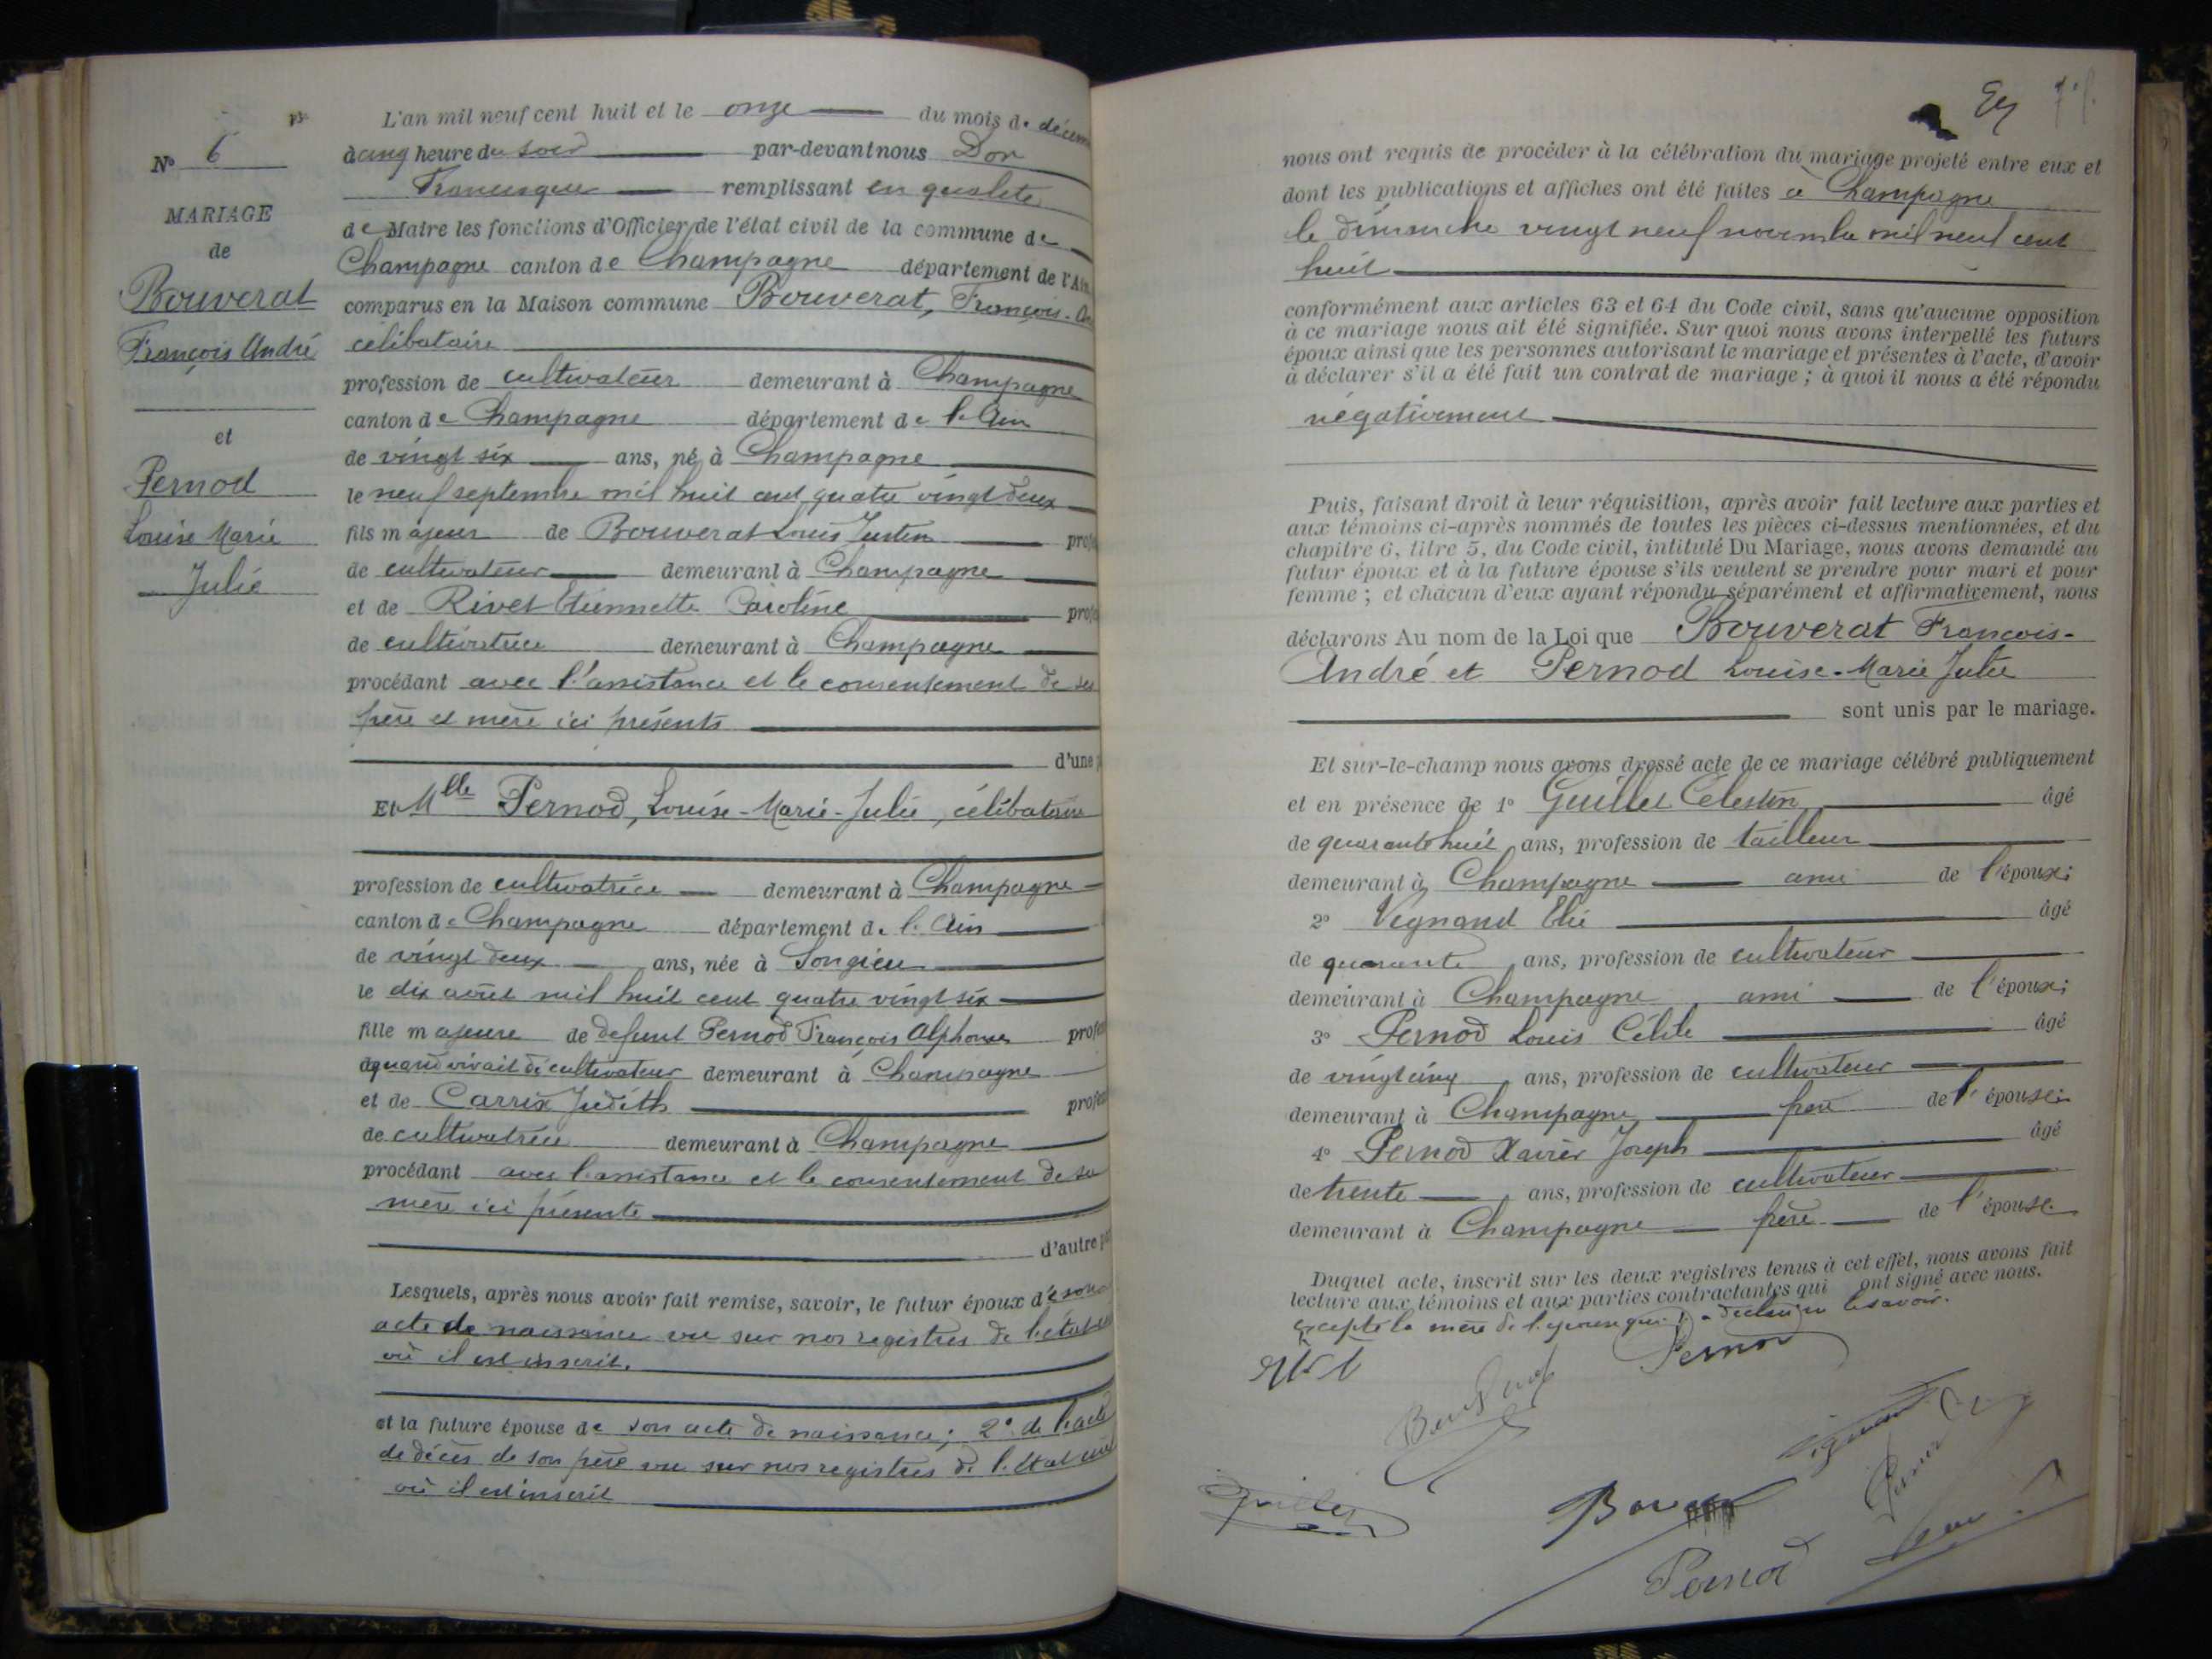 N° 6
MARIAGE
de
Bouverat
François André
et
Pernod
Louise Marie
Julie
L'an mil neuf cent huit et le onze du mois de décem
à cinq heure du soir par-devant nous Dor
Francisque remplissant en qualité
de Maire les fonctions d'Officier de l'état civil de la commune de
Champagne canton de Champagne département de l'Ain
comparus en la Maison commune Bouverat, François-An
célibataire
profession de cultivateur demeurant à Champagne
canton de Champagne département de l'Ain
de vingt six ans, né à Champagne
le neuf septembre mil huit cent quatre vingt deux
fils majeur de Bouverat Louis Justin prof
de cultivateur demeurant à Champagne
et de Rivet Etiennette Caroline prof
de cultivatrice demeurant à Champagne
procédant avec l'assistance et le consentement de ses
père et mère ici présents
d'une p
Et Mlle Pernod, Louise-Marie-Julie, célibataire
profession de cultivatrice demeurant à Champagne
canton de Champagne département de l'Ain
de vingt deux ans, née à Songieu
le dix août mil huit cent quatre vingt six
fille majeure de defunt Pernod François Alphonse profes
quand vivait de cultivateur demeurant à Champagne
et de Carrix Judith profes
de cultivatrice demeurant à Champagne
procédant avec l'assistance et le consentement de sa
mère ici présente
d'autre par
Lesquels, après nous avoir fait remise, savoir, le futur époux de son
acte de naissance vu sur nos registres de l'état
où il est inscrit.
et la future épouse de son acte de naissance; 2° de l'acte
de décès de son père vu sur nos registres de l'Etat civil
où il est inscrit
nous ont requis de procéder à la célébration du mariage projeté entre eux et
dont les publications et affiches ont été faites à Champagne
le dimanche vingt neuf novembre mil neuf cent
huit
conformément aux articles 63 et 64 du Code civil, sans qu'aucune opposition
à ce mariage nous ait été signifiée. Sur quoi nous avons interpellé les futurs
époux ainsi que les personnes autorisant le mariage et présentes à l'acte, d'avoir
à déclarer s'il a été fait un contrat de mariage ; à quoi il nous a été répondu
négativement
Puis, faisant droit à leur réquisition, après avoir fait lecture aux parties et
aux témoins ci-après nommés de toutes les pièces ci-dessus mentionnées, et du
chapitre 6, titre 5, du Code civil, intitulé Du Mariage, nous avons demandé au
futur époux et à la future épouse s'ils veulent se prendre pour mari et pour
femme ; et chacun d'eux ayant répondu séparément et affirmativement, nous
déclarons Au nom de la Loi que Bouverat François-
André et Pernod Louise-Marie Julie
sont unis par le mariage.
Et sur-le-champ nous avons dressé acte de ce mariage célébré publiquement
et en présence de 1° Guillet Célestin âgé
de quarante huit ans, profession de tailleur
demeurant à Champagne ami de l'époux;
2° Vignand Elie âgé
de quarante ans, profession de cultivateur
demeurant à Champagne ami de l'époux;
3° Pernod Louis âgé
de vingt cinq ans, profession de cultivateur
demeurant à Champagne frère de l'épouse;
4° Pernod Xavier Joseph âgé
de trente ans, profession de cultivateur
demeurant à Champagne frère de l'épouse
Duquel acte, inscrit sur les deux registres tenus à cet effet, nous avons fait
lecture aux témoins et aux parties contractantes qui ont signé avec nous.
excepté la mère de l'épouse qui a déclaré ne le savoir.
Pernod
Pernod